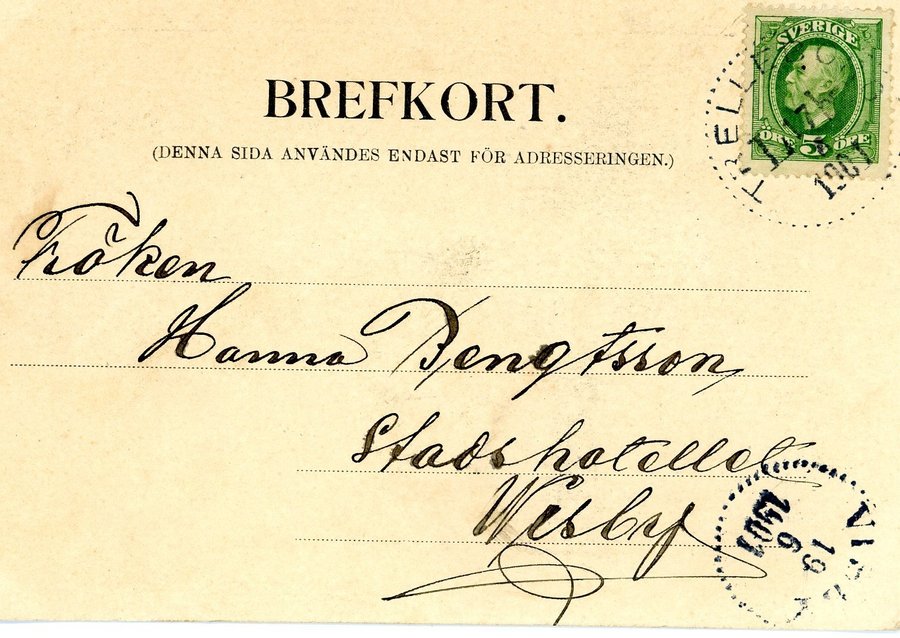 SVERIGE
ÖRE 5 ÖRE
TRELLE
1901
BREFKORT.
(DENNA SIDA ANVÄNDES ENDAST FÖR ADRESSERINGEN.)
Fröken
Hanna Bengtsson,
Stadshotellet
Wisby
19
6
1901